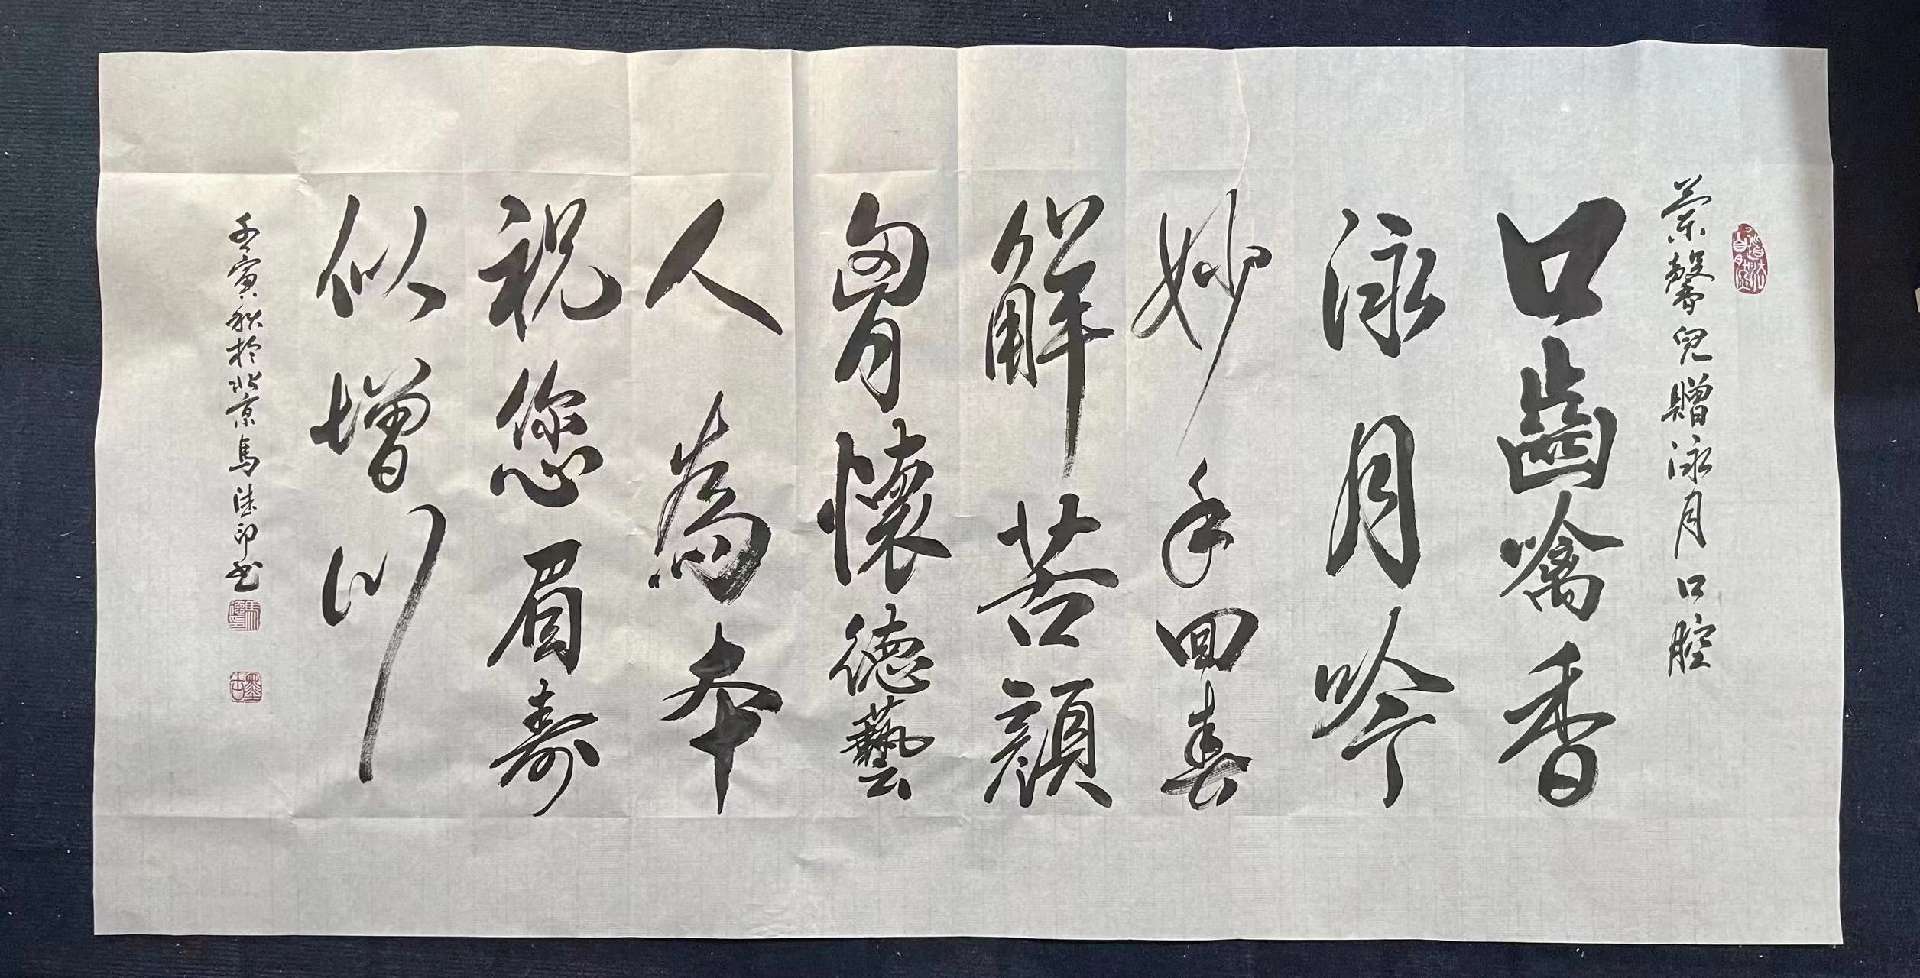 蘭馨兒贈泳月口腔
口齒噙香
泳月吟
妙手回春
解苦顏
胷懷德藝
人為本
祝您眉壽
似增川
壬寅秋於北京馬法印书